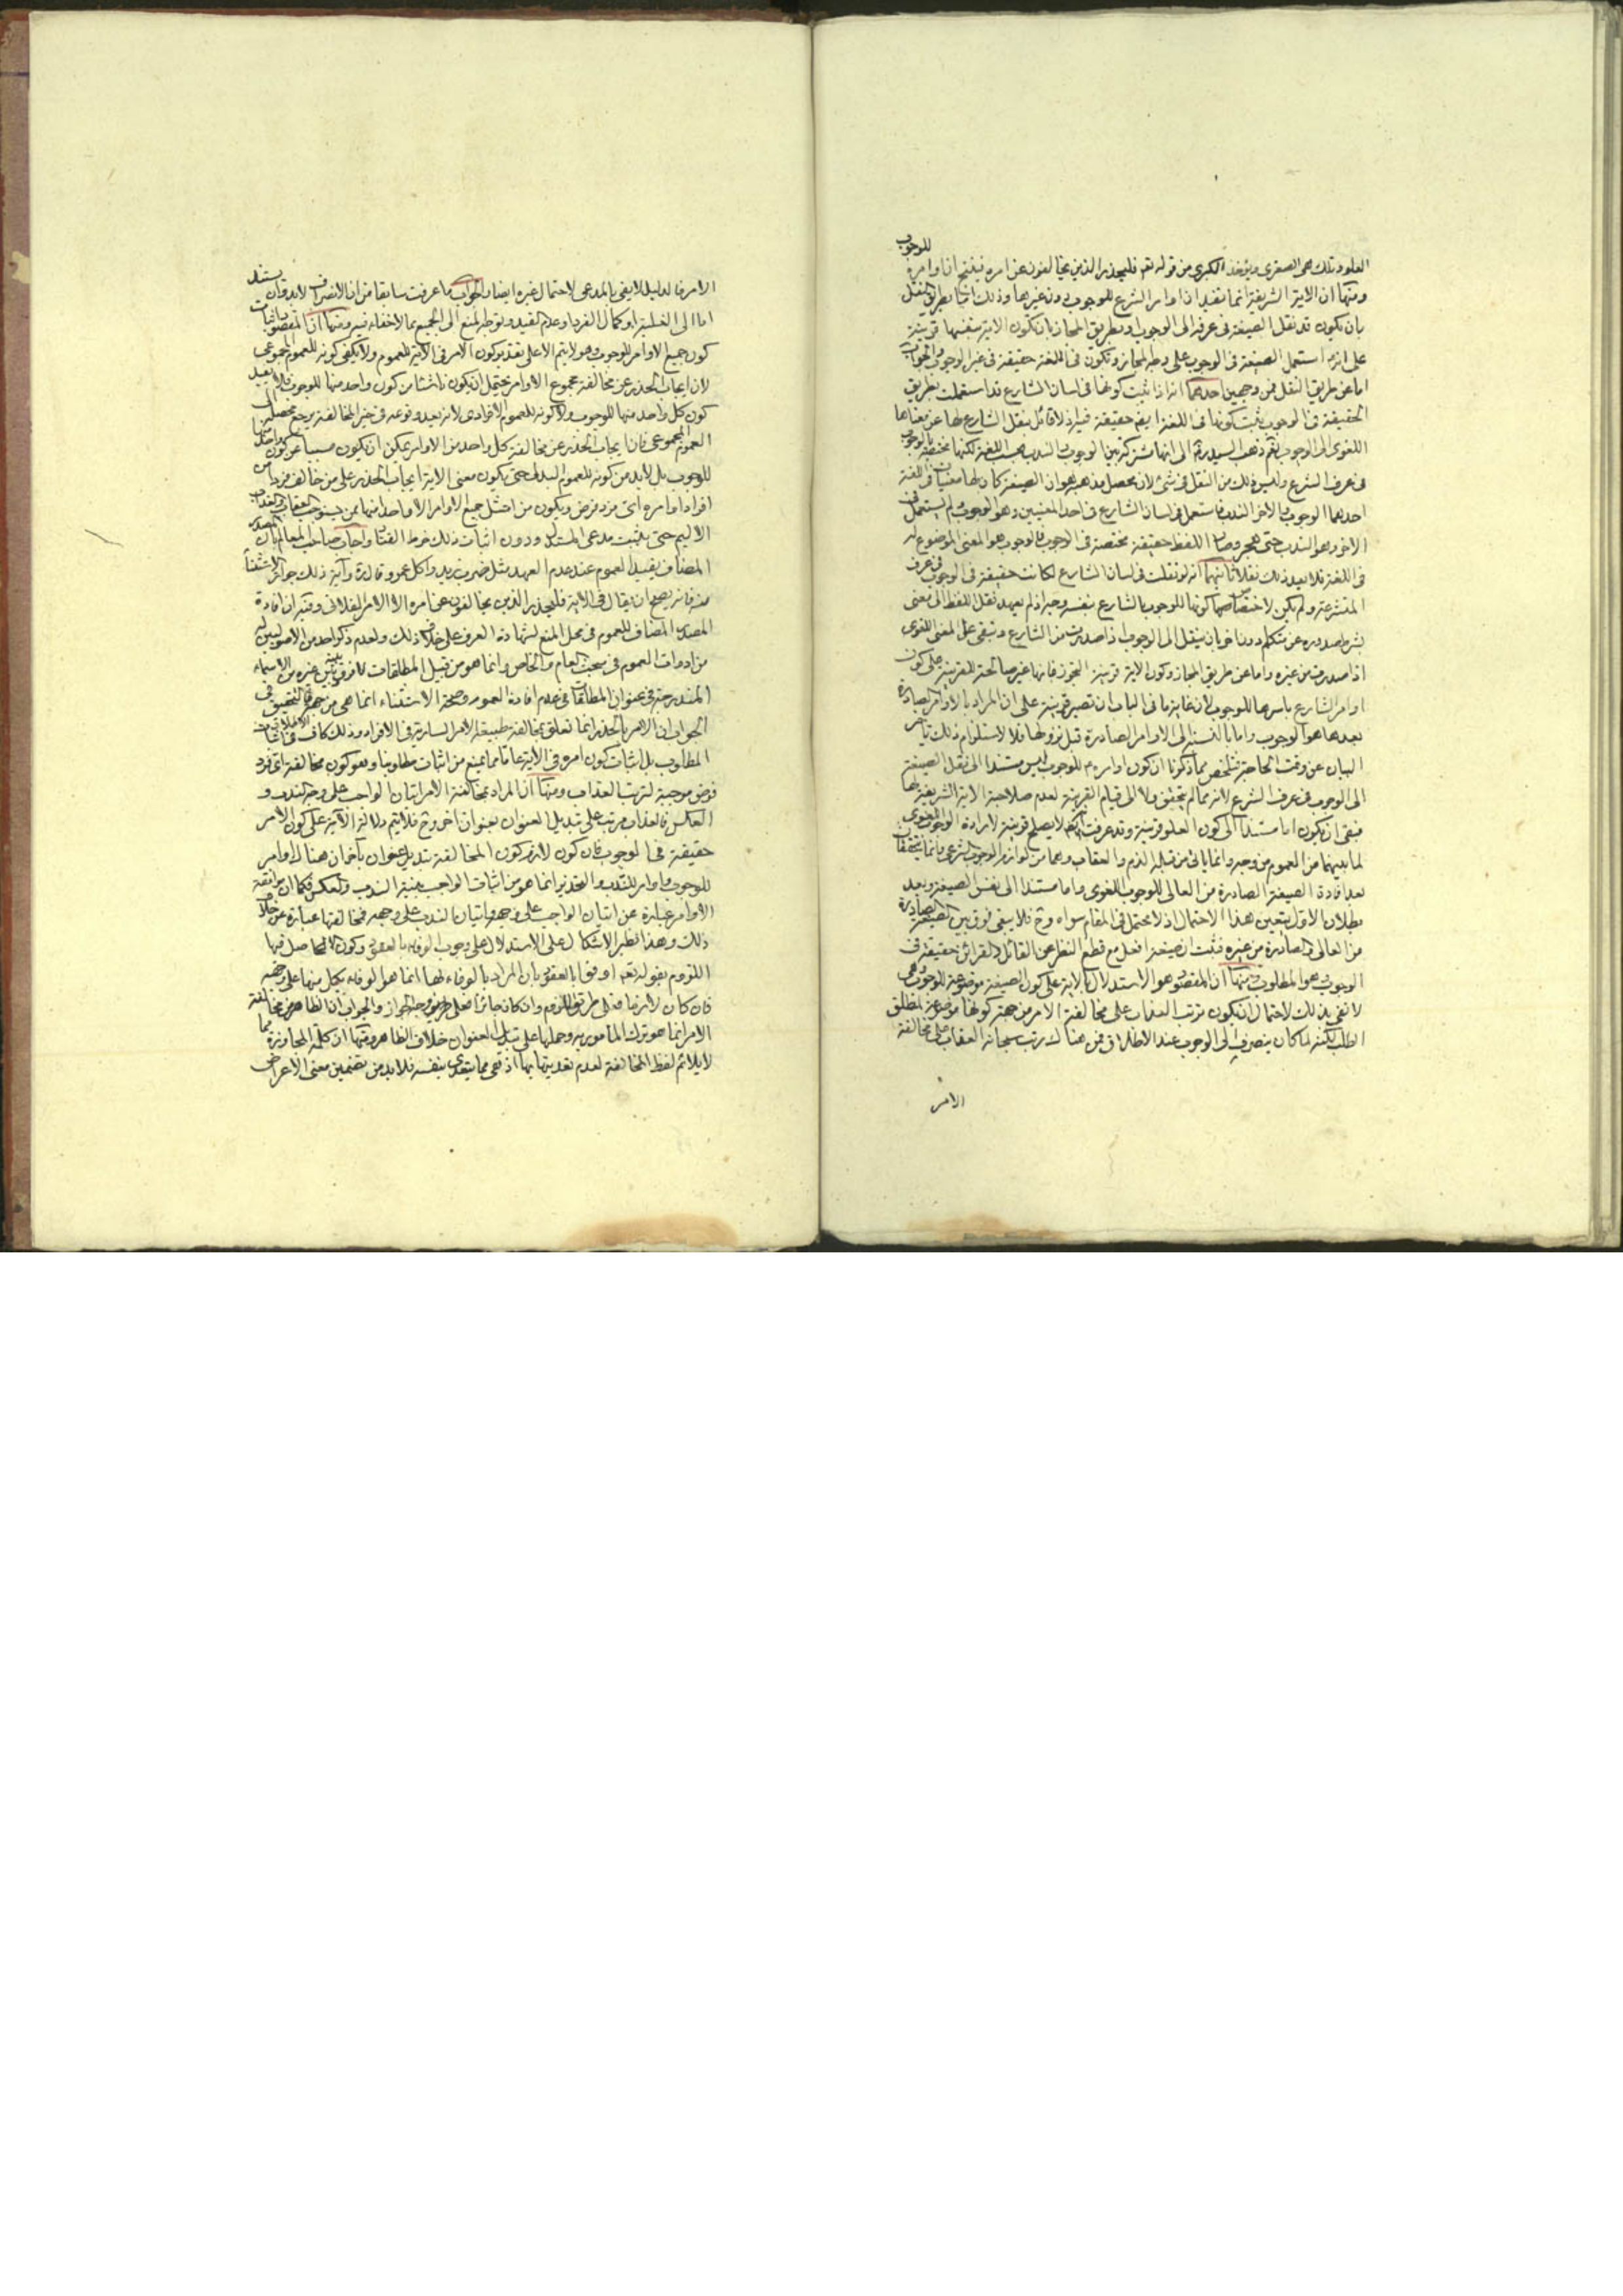 العلو وتلك هي الصغرى ويؤخذ الكبرى من قوله تعم فليحذر الذين يخالفون عن امره فينتج ان اوامره للوجوب
ومنها ان الاية الشريفة انما تفيد ان اوامر الشرع للوجوب دون غيرها وذلك اما بطريق النقل
بان يكون قد نقل الصيغة في عرفه الى الوجوب او بطريق المجاز بان تكون الاية بنفسها قرينة
على انه استعمل الصيغة في الوجوب على وجه المجاز وتكون في اللغة حقيقة في غير الوجوب والجواب
اما عن طريق النقل فمن وجهين احدهما انه اذا ثبت كونها في لسان الشارع قد استعملت بطريق
الحقيقة في الوجوب يثبت كونها في اللغة ايضم حقيقة فيه اذ لا قائل بنقل الشارع لها عن معناها
اللغوى الى الوجوب نعم ذهب السيد ره الى انها مشتركة بين الوجوب والندب بحسب اللغة لكنها مختصة بالوجوب
في عرف الشرع وليس ذلك من النقل في شئ لان محصل مذهبه هو ان الصيغة كان لها معنيان في اللغة
احدهما الوجوب والاخر الندب فاستعمل في لسان الشارع في احد المعنيين وهو الوجوب ولم يستعمل في
الاخر وهو الندب حتى هجر وصار اللفظ حقيقة مختصة في الوجوب فالوجوب هو المعنى الموضوع له
في اللغة فلا يعد ذلك نقلا ثانيهما انه لو نقلت في لسان الشارع لكانت حقيقة في الوجوب في عرف
المتشرعة ولم يكن لاختصاصها كونها للوجوب بالشارع بنفسه وجه اذ لم يعهد نقل اللفظ الى معنى
بشرط صدوره عن متكلم دون اخر بان ينقل الى الوجوب اذا صدرت من الشارع وتبقى على المعنى اللغوى
اذا صدرت من غيره واما عن طريق المجاز وكون الاية قرينة التجوز فانها غير صالحة للقرينية على كون
اوامر الشارع باسرها للوجوب لان غاية ما في الباب ان تصير قرينة على ان المراد بالاوامر الصادرة
بعدها هو الوجوب واما بالنسبة الى الاوامر الصادرة قبل نزولها فلا لاستلزام ذلك تاخر
البيان عن وقت الحاجة فتلخص مما ذكرنا ان كون اوامره للوجوب ليس مستندا الى نقل الصيغة
الى الوجوب في عرف الشرع لانه مما لم يتحقق ولا الى قيام القرينة لعدم صلاحية الاية الشريفة لها
فبقى ان يكون اما مستندا الى كون العلو قرينة وقد عرفت انه لا يصلح قرينة لارادة الوجوب اللغوى
لما بينهما من العموم من وجه وانما ياتي من قبله الذم والعقاب وهما من لوازم الوجوب الشرعى وانما يتحققان
بعد افادة الصيغة الصادرة من العالى للوجوب اللغوى واما مستندا الى نفس الصيغة وبعد
بطلان الاول يتعين هذا الاحتمال اذ لا محتمل في المقام سواه وح فلا يبقى فرق بين الصيغة الصادرة
من العالى والصادرة من غيره فثبت ان صيغة افعل مع قطع النظر عن القائل والقرائن حقيقة في
الوجوب وهو المطلوب ومنها ان المقصود هو الاستدلال بالاية على كون الصيغة موضوعة للوجوب وهي
لا تفي بذلك لاحتمال ان يكون ترتب العذاب على مخالفة الامر من جهة كونها موضوعة لمطلق
الطلب لكنه لما كان ينصرف الى الوجوب عند الاطلاق فمن هناك رتب سبحانه العقاب على مخالفة
الامر
الامر فالدليل لا يفي بالمدعى لاحتمال غيره ايضا والجواب ما عرفت سابقا من ان الانصراف لا بد وان يستند
اما الى الغلبة او كمال الفرد او عدم التقييد وتوجه المنع الى الجميع مما لا خفاء فيه ومنها ان المقصود اثبات
كون جميع الاوامر للوجوب وهو لا يتم الا على تقدير كون الامر في الاية للعموم ولا يكفي كونه للعموم المجموعى
لان ايجاب الحذر عن مخالفة مجموع الاوامر يحتمل ان يكون ناشئا من كون واحد منها للوجوب فلا يفيد
كون كل واحد منها للوجوب ولا كونه للعموم الافرادى لانه بعد وقوعه في حيز المخالفة يرجع محصله الى
العموم المجموعى فان ايجاب الحذر عن مخالفة كل واحد من الاوامر يمكن ان يكون مسببا عن كون واحد منها
للوجوب بل لا بد من كونه للعموم البدلى حتى يكون معنى الاية ايجاب الحذر على من خالف فردا من
افراد اوامره اى فرد فرض ويكون من امتثل جميع الاوامر الا واحدا منها ممن يستوجب العقاب والعذاب
الاليم حتى يثبت مدعى المستدل ودون اثبات ذلك خرط القتاد واجاب صاحب المعالم بان المصدر
المضاف يفيد العموم عند عدم العهد مثل ضرب زيد واكل عمرو قال ره واية ذلك جواز الاستثناء
منه فانه يصح ان يقال في الاية فليحذر الذين يخالفون عن امره الا الامر الفلانى وفيه ان افادة
المصدر المضاف للعموم في محل المنع لشهادة العرف على خلاف ذلك ولعدم ذكر احد من الاصوليين له
من ادوات العموم في مبحث العام والخاص وانما هو من قبيل المطلقات فلا فرق بينه وبين غيره من الاسماء
المندرجة في عنوان المطلقات في عدم افادة العموم وصحة الاستثناء انما هي من جهة الاطلاق فالتحقيق في
الجواب ان الامر بالحذر انما تعلق بمخالفة طبيعة الامر السارية في الافراد وذلك كاف في اثبات
المطلوب بل اثبات كون امره في الاية عاما مما يمنع من اثبات مطلوبنا وهو كون مخالفة اى فرد
فرض موجبة لترتب العذاب ومنها ان المراد بمخالفة الامر اتيان الواجب على وجه الندب و
العكس فالعذاب مرتب على تبديل العنوان بعنوان اخر وح فلا يتم دلالة الاية على كون الامر
حقيقة في الوجوب فان كون لازم كون المخالفة تبديل عنوان باخر ان هناك اوامر
للوجوب واوامر للندب والتحذير انما هو من اثبات الواجب بنية الندب والعكس فكما ان موافقة
الاوامر عبارة عن اتيان الواجب على وجهه واتيان الندب على وجهه فمخالفتها عبارة عن خلاف
ذلك وهذا نظير الاشكال على الاستدلال على وجوب الوفاء بالعقود وكون الحاصل فيها
اللزوم بقوله تعم اوفوا بالعقود بان المراد بالوفاء لها انما هو الوفاء بكل منها على وجهه
فان كان لازما فعلى طريق اللزوم وان كان جائزا فعلى وجه الجواز والجواب ان الظاهر من مخالفة
الامر انما هو ترك المامور به وحملها على تبديل العنوان خلاف الظاهر ومنها ان كلمة المجاوزة مما
لا يلائم لفظ المخالفة لعدم تعديتها بها اذ هي مما يتعدى بنفسه فلا بد من تضمين معنى الاعراض